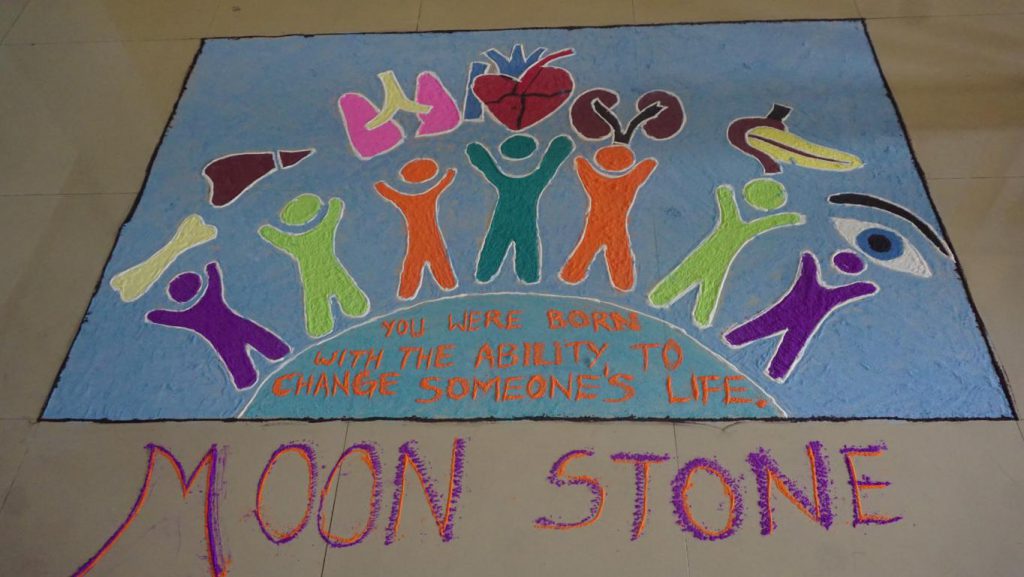 YOU WERE BORN
WITH THE ABILITY TO
CHANGE SOMEONE'S LIFE.
MOON STONE